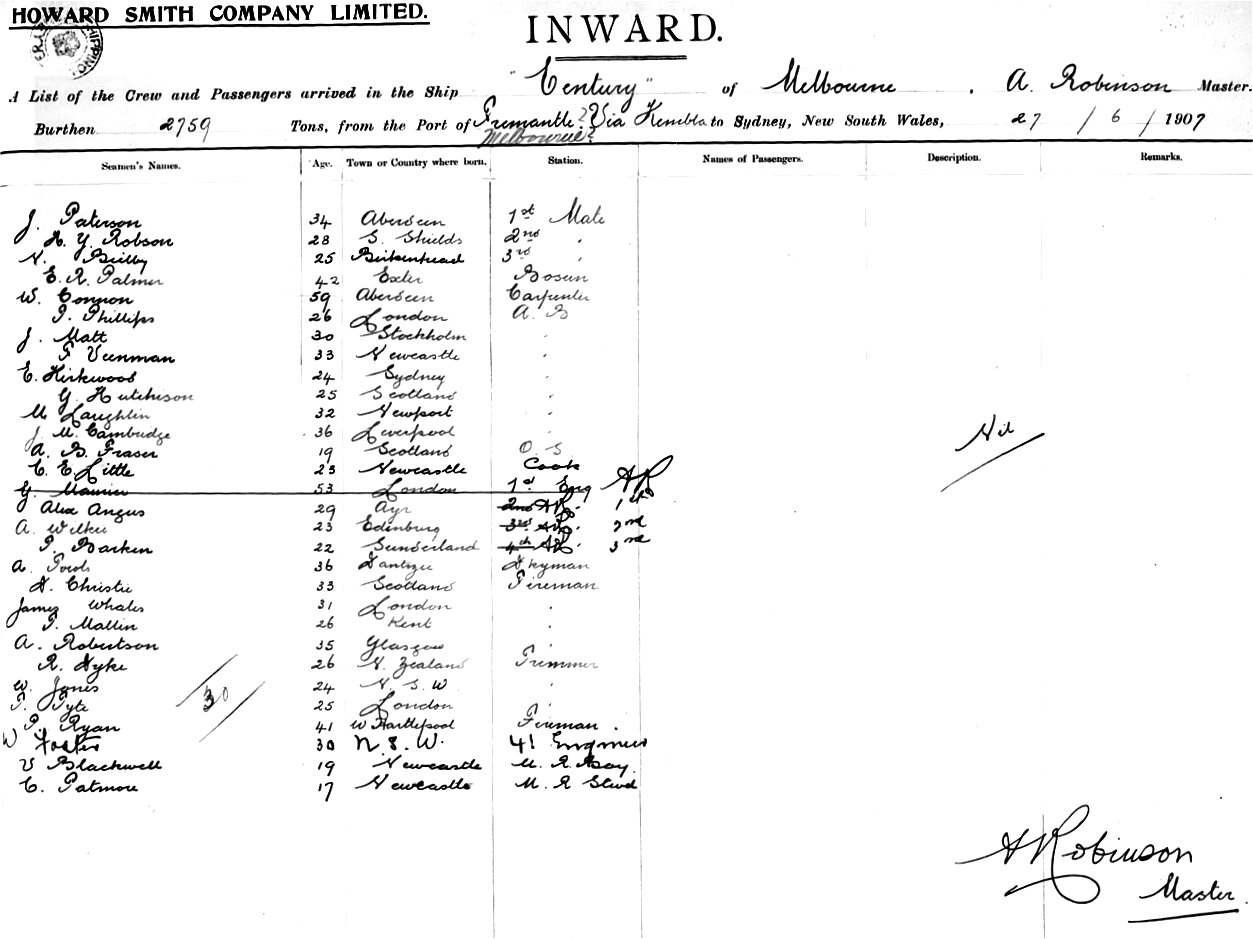 HOWARD SMITH COMPANY LIMITED.
INWARD.
A List of the Crew and Passengers arrived in the Ship "Century" of Melbourne . A. Robinson Master.
Burthen 2759 Tons, from the Port of Fremantle? Via Kembla to Sydney, New South Wales, 27 / 6 / 1907
Melbourne?
Seamen's Names. Age. Town or Country where born. Station. Names of Passengers. Description. Remarks.
J. Paterson 34 Aberdeen 1st Mate
H. Y. Robson 28 S. Shields 2nd "
N. 25 Birkenhead 3rd "
E. R. Palmer 42 Exter Bosun
W. Connon 59 Aberdeen Carpenter
P. Phillips 26 London A. B
J. Matt 30 Stockholm "
F Veenman 33 Newcastle "
E. Kirkwood 24 Sydney "
G. Hutchison 25 Scotland "
M Laughlin 32 Newport "
J. M. Cambridge 36 Liverpool "
Nil
A. B. Fraser 19 Scotland O. S
C. E. Little 23 Newcastle Cook
G. Maurice 53 London 1st Eng AR
Alex Angus 29 Ayr 2nd AR. 1st
A. Wilkie 23 Edinburg 3rd AR. 2nd
P. Barken 22 Sunderland 4th AR. 3rd
A. 36 Dkyman
D. Christie 33 Scotland Fireman
James Whales 31 London "
P. Mallin 26 Kent "
A. Robertson 35 Glasgow "
R. Dyke 26 N. Zealand Trimmer
W. Jones 24 N. S. W "
30
F. Tyte 25 London "
P. Ryan 41 W Hartlepool Fireman .
W Foster 30 N. S. W. 4th Engineer
V Blackwell 19 Newcastle M. R. Boy.
C. Patmore 17 Newcastle M. R Stwd
A Robinson
Master.